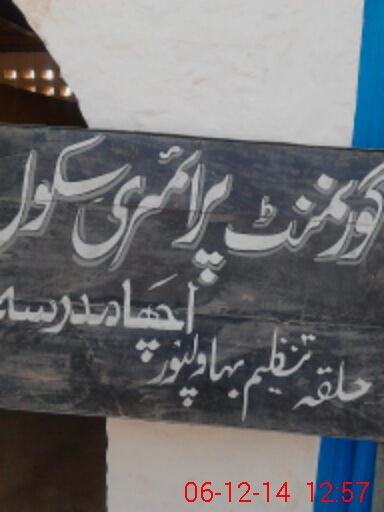 گورنمنٹ پرائمری سکول
اچھا مدرسہ
حلقہ تنظیم بہاولپور
06-12-14 12:57